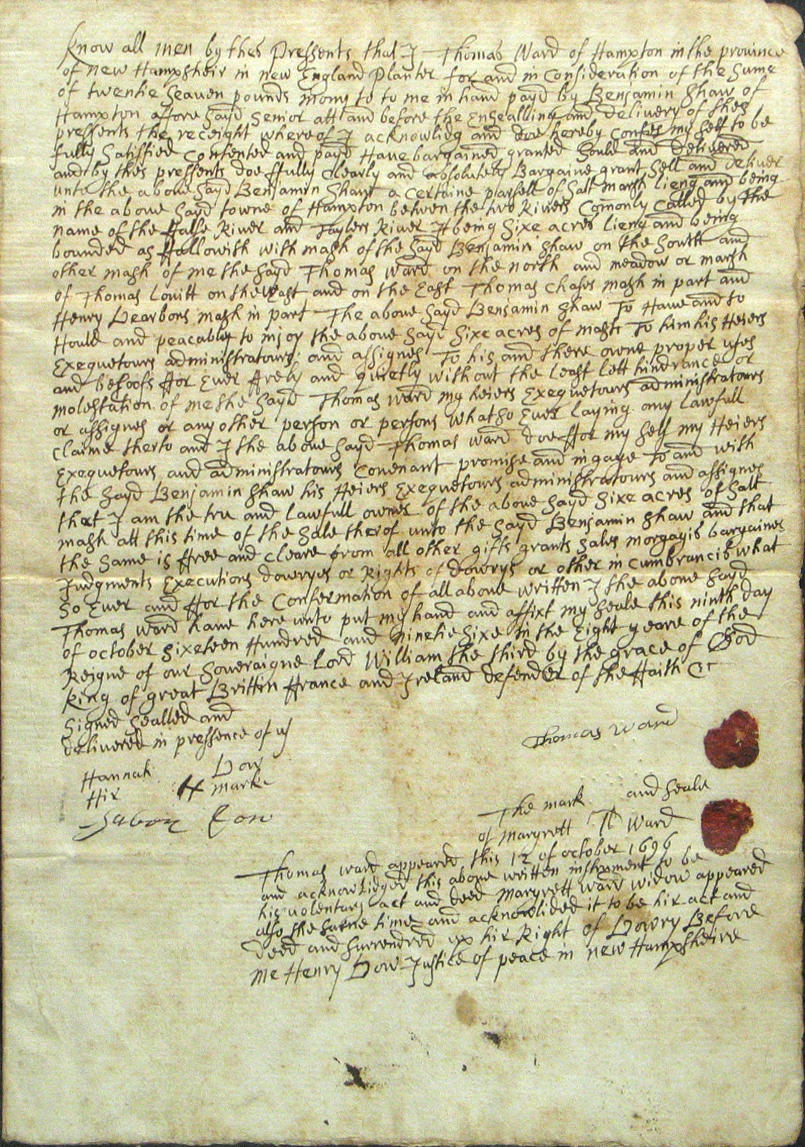 Know all men by thes Pressents that I Thomas Ward of Hampton in the province
of New Hampsheir in new England Planter for and in Consideration of the Sume
of twentie Seaven pounds mony to to me in hand payd by Benjamin Shaw of
Hampton affore Sayd Senior att and before the Ensealling and delivery of thes
pressents the receight where of I acknowlidg and doe hereby Confes my Self to be
fully Satisfied Contented and payd Have bargained granted Sould and delivered
and by thes pressents doe ffully Clearly and absolutely Bargaine grant Sell and deliver
unto the above Sayd Benjamin Shaw a Certaine parsell of Salt marsh lieng and being
in the above Sayd towne of Hampton betwen the two Rivers Comonly Called by the
name of the ffalls River and Taylers River it being Sixe acres lieng and being
bounded as ffollowith with mash of the Sayd Benjamin Shaw on the South and
other mash of me the Sayd Thomas Ward on the north and meadow or marsh
of Thomas Lovitt on the West and on the East Thomas Chases mash in part and
Henry Dearbons mash in part The above Sayd Benjamin Shaw To Have and to
Hould and peacably to injoy the above Sayd Sixe acres of mash To him his Heiers
Exequetours administratours and assignes To his and there owne proper uses
and behoofs ffor Ever ffreely and quietly without the least lett hindrance or
molestation of me the Sayd Thomas Ward my heiers Exequetours administratours
or assignes or any other person or persons whatso Ever laying any lawfull
Claime therto and I the above Sayd Thomas Ward doe ffor my Self my Heiers
Exequetours and administratours Covenant promise and ingage to and with
the Sayd Benjamin Shaw his Heiers Exequetours administratours and assignes
that I am the tru and lawfull owner of the above Sayd Sixe acres of Salt
mash att this time of the Sale therof unto the Sayd Benjamin Shaw and that
the Same is ffree and Cleare from all other gifts grants Sales morgagis bargaines
Judgments Executions dowryes or Rights of Dowrys or other in Cumbrancis what
So Ever and ffor the Confermation of all above written I the above Sayd
Thomas Ward have here unto put my hand and affixt my Seale this ninth day
of october Sixteen Hundred and ninetie Sixe in the Eight yeare of the
Reigne of our Soveraigne Lord William the third by the grace of God
King of great Brittin ffrance and Ireland defender of the ffaith &c
Signed Sealled and
delivered in pressence of us
Thomas Ward
Hannah Dow
Hir H marke
The mark and Seale
of Margrett Ward
Thomas Ward appeared this 12 of october 1696
and acknowlidged this above written instrument to be
his volentary act and deed Margrett Ward widow appeared
also the Same time and acknowlidged it to be hir act and
Deed and Surrendred up hir Right of Dowry Before
me Henry Dow Justice of peace in new Hampsheire